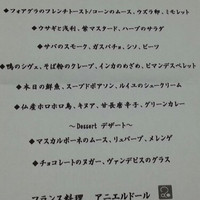 ◆フォアグラのフレンチトースト/コーンのムース、ウズラ卵、ミモレット
◆ウサギと浅利、紫マスタード、ハーブのサラダ
◆サバのスモーク、ガスパチョ、シソ、ビーツ
◆鴨のシヴェ、そば粉のクレープ、インカのめざめ、ピマンデスペレット
◆本日の鮮魚、スープドポアソン、ルイユのシュークリーム
◆仏産ホロホロ鳥、キヌア、甘長唐辛子、グリーンカレー
～Dessert デザート～
◆マスカルポーネのムース、リュバーブ、メレンゲ
◆チョコレートのヌガー、ヴァンデピスのグラス
フランス料理 アニエルドール